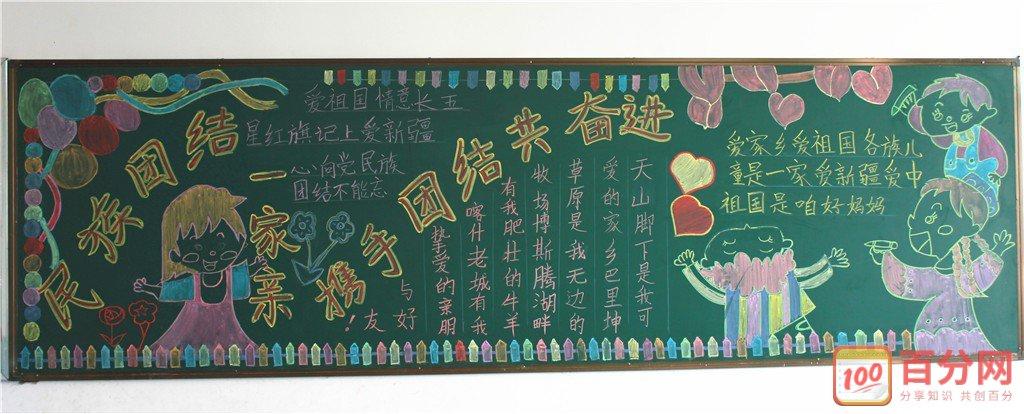 民族团结一家亲携手团结共奋进
爱祖国情意长五
星红旗记上爱新疆
心向党民族
团结不能忘
天山脚下是我可
爱的家乡巴里坤
草原是我无边的
牧场博斯腾湖畔
有我肥壮的牛羊
喀什老城有我
挚爱的亲朋
与好
友！
爱家乡爱祖国各族儿
童是一家爱新疆爱中
祖国是咱好妈妈
100 百分网
分享知识 共创百分